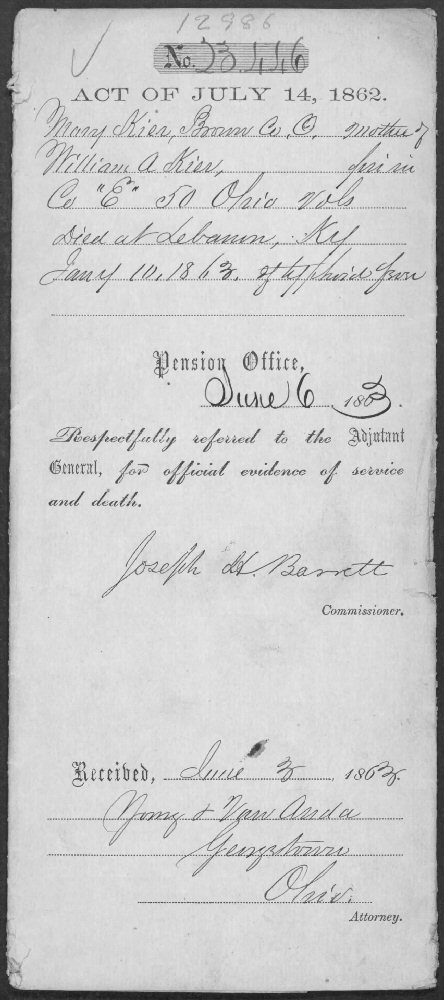 12986
No. 23,446
ACT OF JULY 14, 1862.
Mary Kier, Brown Co, O, mother of
William A Kier, pri in
Co "E" 50 Ohio Vols
Died at Lebanon, Ky
Jany 10, 1863, of typhoid fever
Pension Office,
June 6 1863.
Respectfully referred to the Adjutant
General, for official evidence of service
and death.
Joseph H. Barrett
Commissioner.
Received, June 3, 1863.
& Van Anda
Georgetown
Ohio.
Attorney.